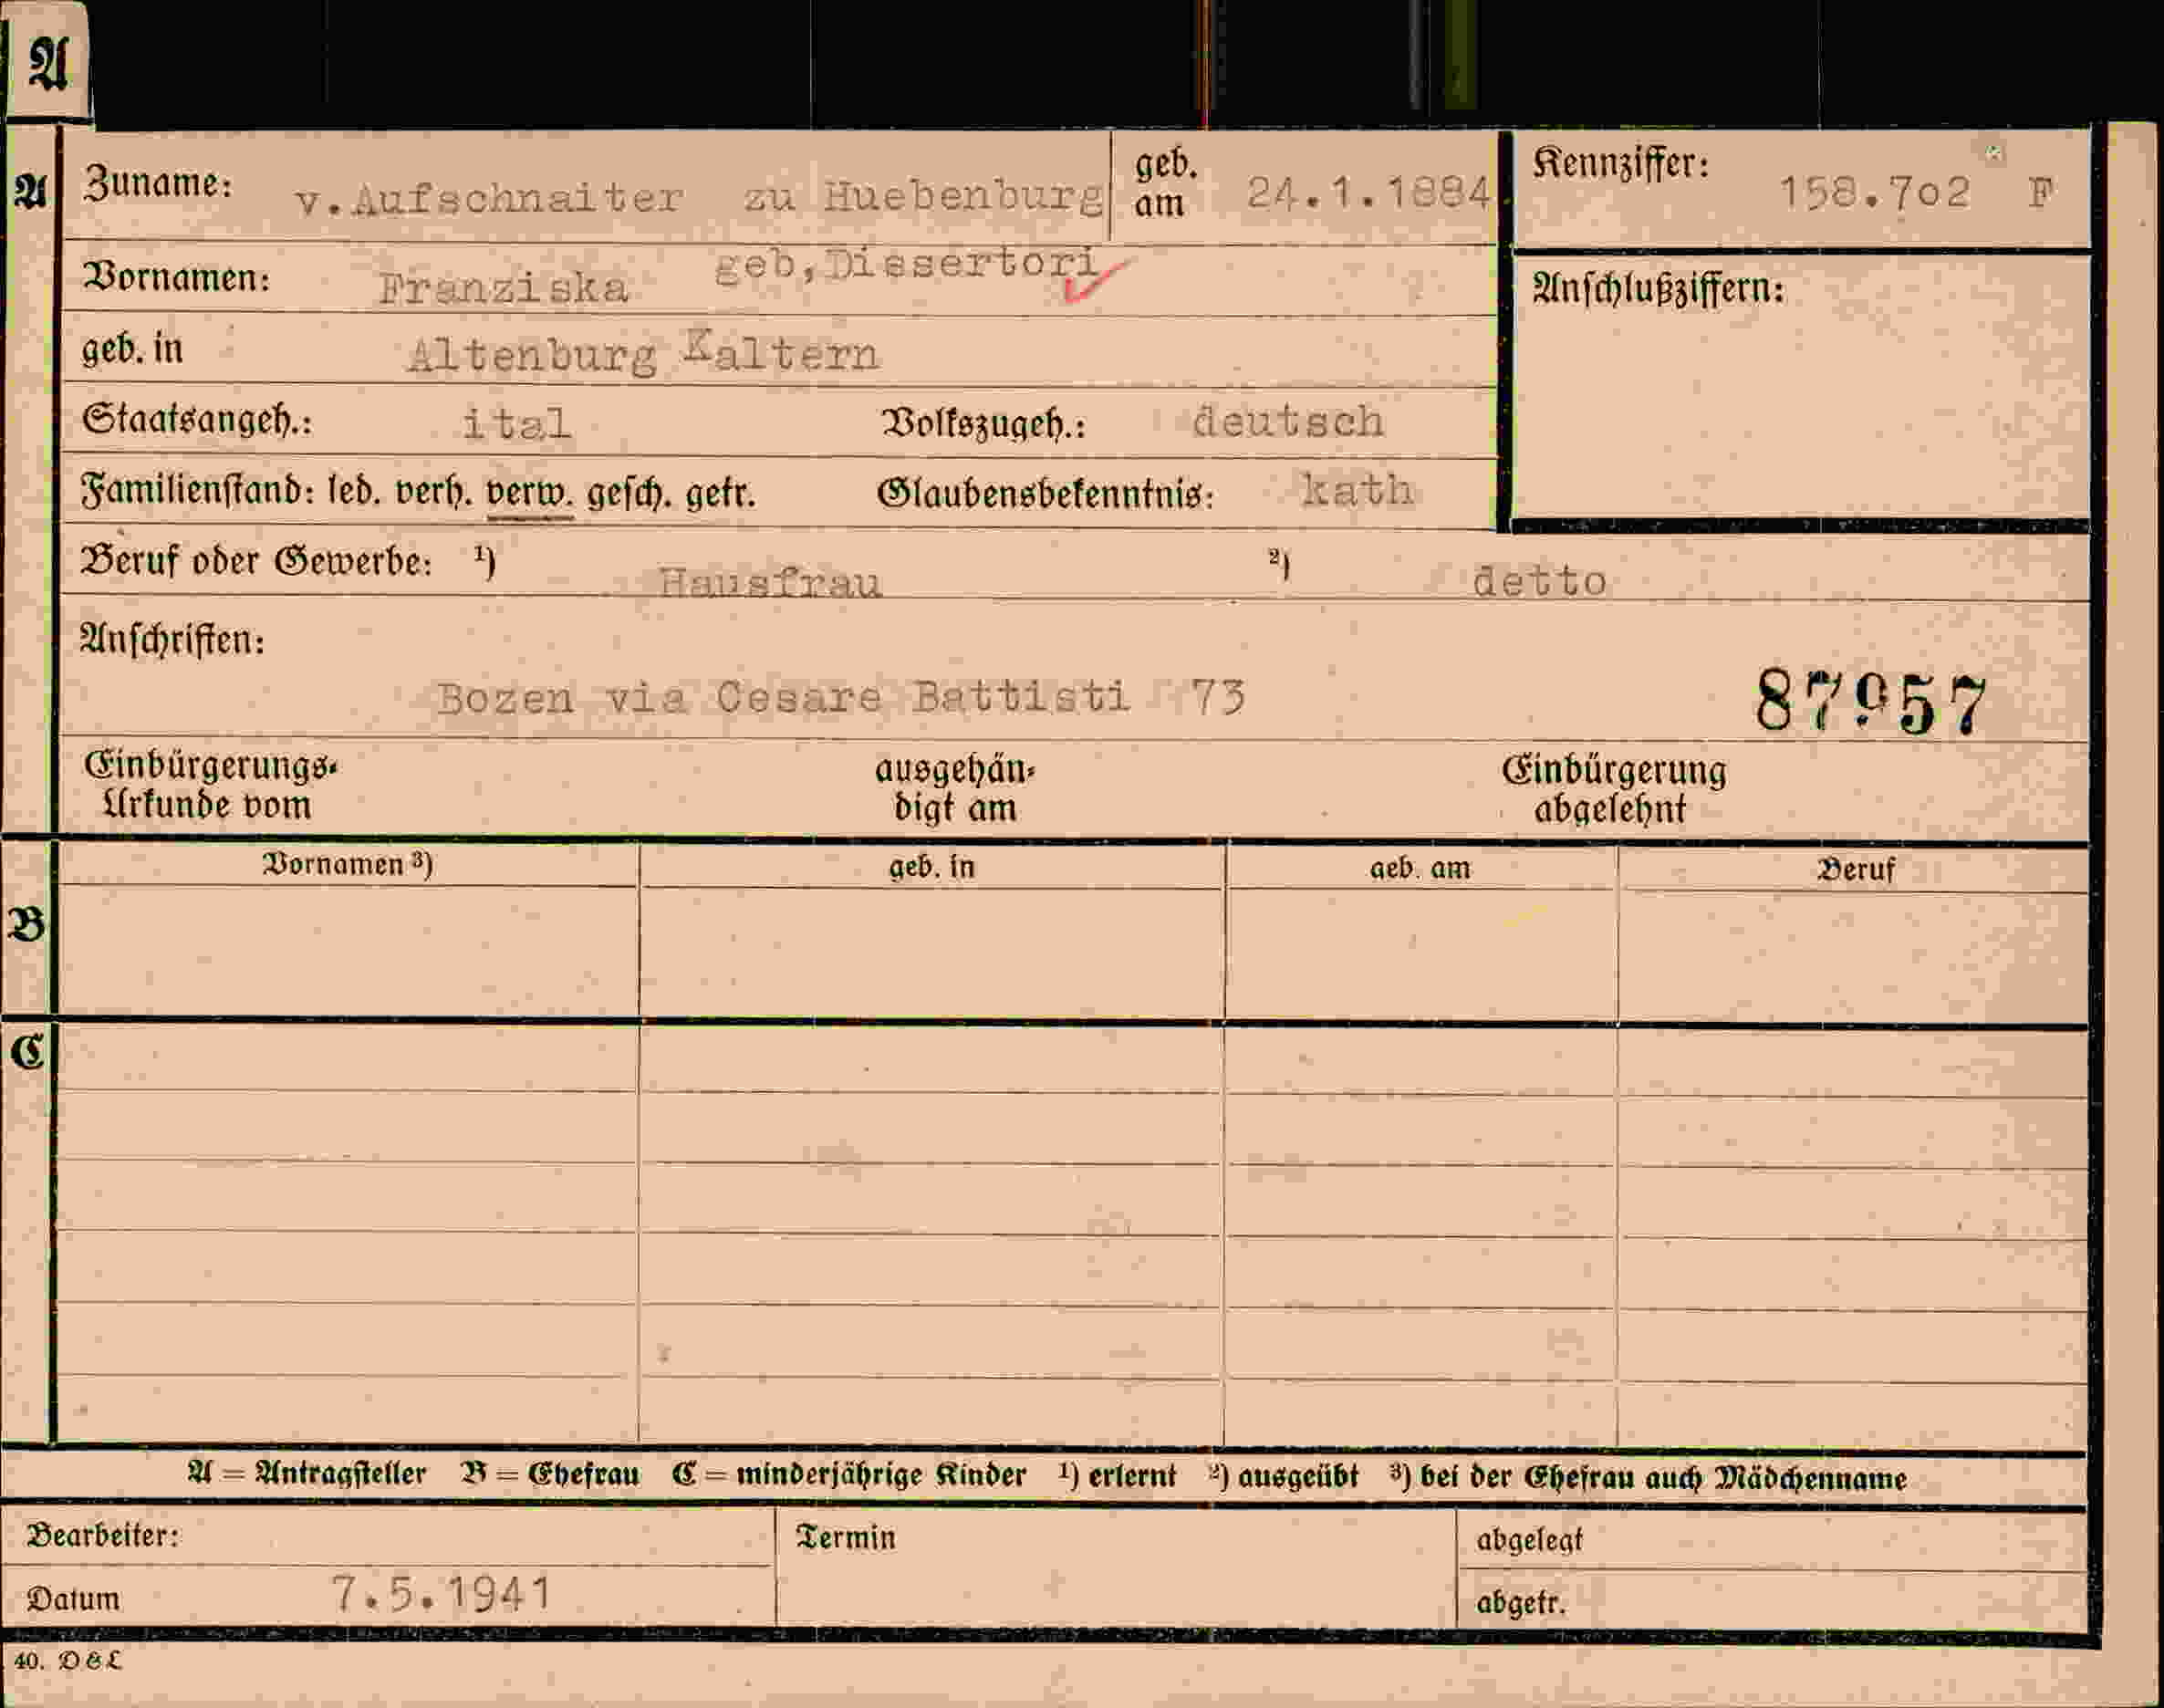 A
A Zuname: v.Aufschnaiter zu Huebenburg geb. am 24.1.1884 Kennziffer: 158.7o2 F
Vornamen: Franziska geb,Dissertori Anschlußziffern:
geb. in Altenburg Kaltern
Staatsangeh.: ital Volkszugeh.: deutsch
Familienstand: led. verh. verw. gesch. getr. Glaubensbekenntnis: kath
Beruf oder Gewerbe: 1) Hausfrau 2) detto
Anschriften:
Bozen via Cesare Battisti 73 87957
Einbürgerungs- ausgehän- Einbürgerung
Urkunde vom digt am abgelehnt
Vornamen 3) geb. in geb. am Beruf
B
C
A = Antragsteller B = Ehefrau C = minderjährige Kinder 1) erlernt 2) ausgeübt 3) bei der Ehefrau auch Mädchenname
Bearbeiter: Termin abgelegt
Datum 7.5.1941 abgetr.
40. D&L